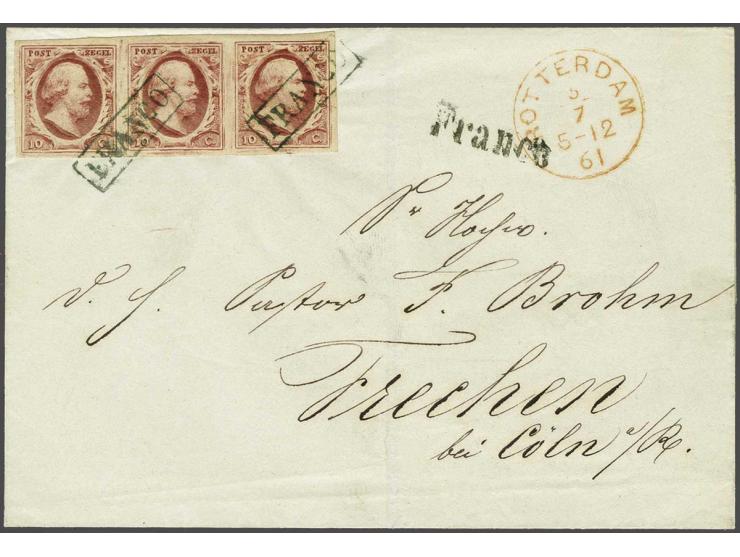 POST ZEGEL POST ZEGEL POST ZEGEL
10 C. 10 C. 10 C.
FRANCO FRANCO
Franco
ROTTERDAM
5
7
5-12
61
Sr Hochw.
d. H. Pastor F. Brohm
Frechen
bei Cöln a/R.